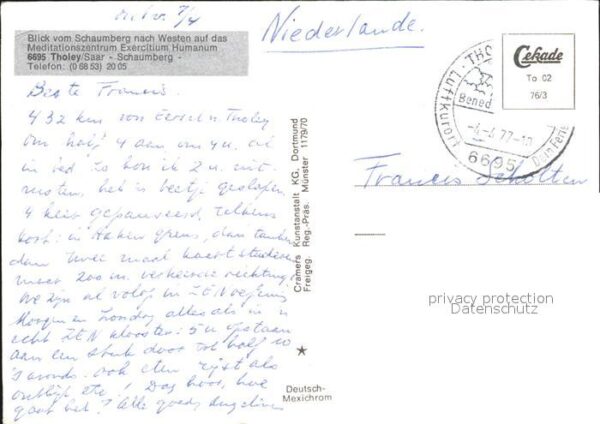 7/4
Niederlande.
Blick vom Schaumberg nach Westen auf das
Meditationszentrum Exercitium Humanum
6695 Tholey/Saar - Schaumberg -
Telefon: (0 68 53) 20 05
Cekade
To 02
76/3
THO
Luftkurort
Bened
-4.-4.77-1
6695
Dein Ferie
Beste Francis.
432 km van Eersel n Tholey
om half 4 aan om 4 u. al
in bed zo kon ik 2 u. uit
rusten, heb 'n beetje geslapen.
4 keer gepauseerd, telkens
kort: in Aken grens, dan tanken
dan twee maal kaart studeren
maar 200 m. verkeerde richting
We zijn al volop in ZEN oefening
Morgen en Zondag alles als in 'n
echt ZEN klooster: 5 u opstaan
aan een stuk door tot half 10
's avonds. ook eten rijst als
ontbijt etc! Dag hoor, hoe
gaat het? alle goeds
Francis Scholten
Cramers Kunstanstalt KG, Dortmund
Freigeg. Reg.-Präs. Münster 1179/70
privacy protection
Datenschutz
Deutsch-
Mexichrom